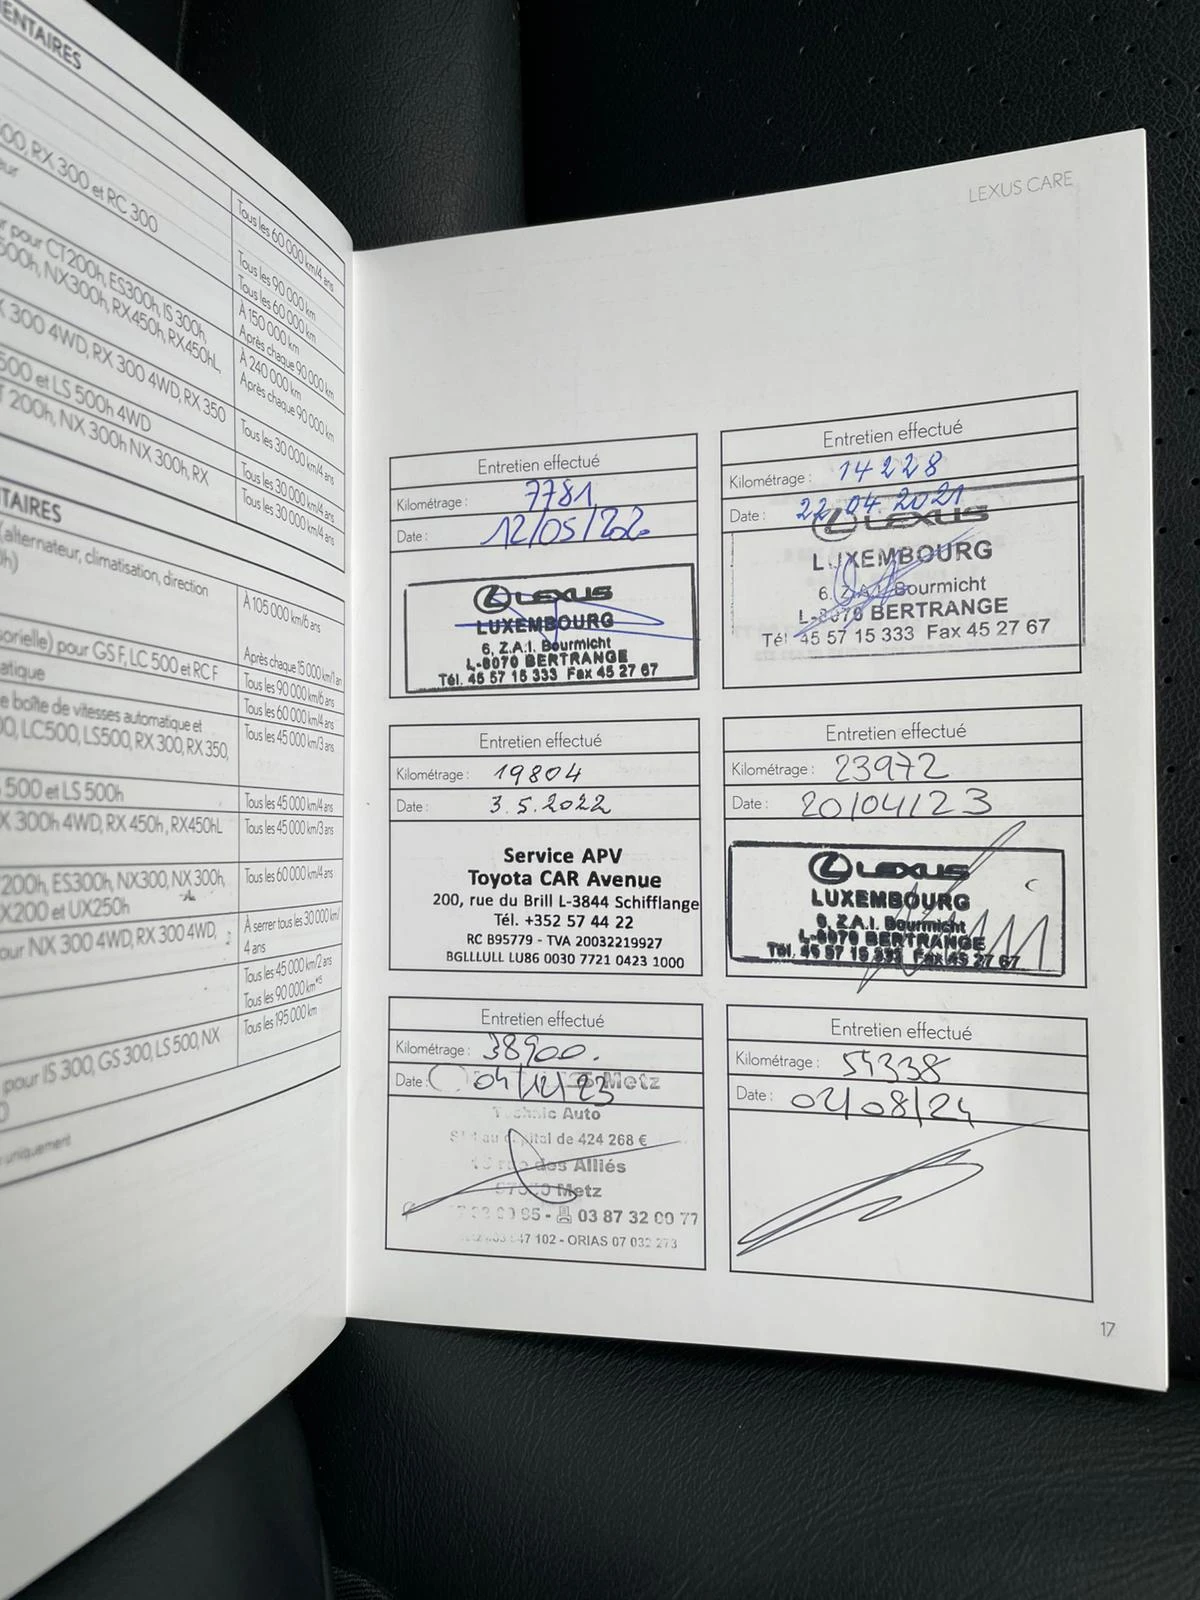 ENTAIRES
500, RX 300 et RC 300
Tous les 60 000 km/4 ans
eur
Tous les 90 000 km
Tous les 60 000 km
r pour CT200h, ES300h, IS 300h,
500h, NX300h, RX450h, RX450hL,
À 150 000 km
Après chaque 90 000 km
À 240 000 km
Après chaque 90 000 km
X 300 4WD, RX 300 4WD, RX 350
Tous les 30 000 km/4 ans
500 et LS 500h 4WD
Tous les 30 000 km/4 ans
T 200h, NX 300h NX 300h, RX
Tous les 30 000 km/4 ans
NTAIRES
(alternateur, climatisation, direction
0h)
À 105 000 km/6 ans
sorielle) pour GS F, LC 500 et RC F
Après chaque 15 000 km/1 an
atique
Tous les 90 000 km/6 ans
e boîte de vitesses automatique et
Tous les 60 000 km/4 ans
00, LC500, LS500, RX 300, RX 350,
Tous les 45 000 km/3 ans
500 et LS 500h
Tous les 45 000 km/4 ans
X 300h 4WD, RX 450h, RX450hL
Tous les 45 000 km/3 ans
200h, ES300h, NX300, NX 300h,
X200 et UX250h
Tous les 60 000 km/4 ans
our NX 300 4WD, RX 300 4WD,
À serrer tous les 30 000 km/
4 ans
Tous les 45 000 km/2 ans
Tous les 90 000 km*5
Tous les 195 000 km
pour IS 300, GS 300, LS 500, NX
uniquement
LEXUS CARE
Entretien effectué
Kilométrage : 7781
Date : 12/05/202.
LEXUS
LUXEMBOURG
6, Z.A.I. Bourmicht
L-8070 BERTRANGE
Tél. 45 57 15 333 Fax 45 27 67
Entretien effectué
Kilométrage : 14 228
Date : 22.04.2021
LEXUS
LUXEMBOURG
6, Z.A.I. Bourmicht
L-8070 BERTRANGE
Tél 45 57 15 333 Fax 45 27 67
Entretien effectué
Kilométrage : 19804
Date : 3.5.2022
Service APV
Toyota CAR Avenue
200, rue du Brill L-3844 Schifflange
Tél. +352 57 44 22
RC B95779 - TVA 20032219927
BGLLLULL LU86 0030 7721 0423 1000
Entretien effectué
Kilométrage : 23972
Date : 20/04/23
LEXUS
LUXEMBOURG
6, Z.A.I. Bourmicht
L-8070 BERTRANGE
Tél. 45 57 15 333 Fax 45 27 67
Entretien effectué
Kilométrage : 38900.
Date : 04/12/23
Metz
Technic Auto
capital de 424 268 €
rue des Alliés
Metz
03 87 32 00 77
102 - ORIAS 07 032 273
Entretien effectué
Kilométrage : 54338
Date : 02/08/24
17